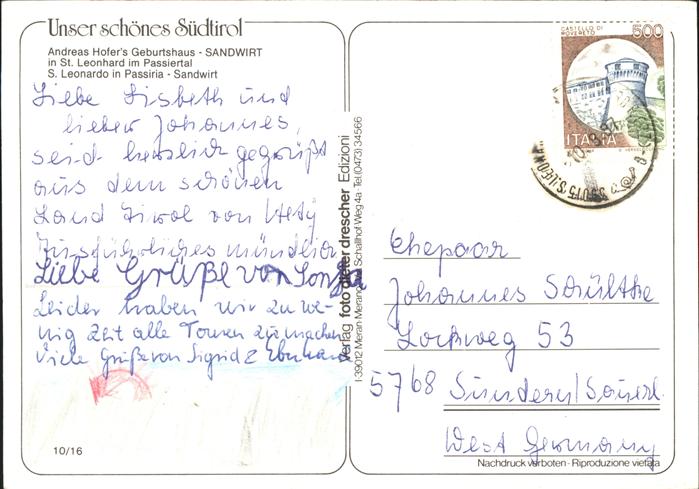 Unser schönes Südtirol
Andreas Hofer's Geburtshaus - SANDWIRT
in St. Leonhard im Passiertal
S. Leonardo in Passiria - Sandwirt
Liebe Lisbeth und
lieber Johannes,
seid herzlich gegrüßt
aus dem schönen
Land Tirol von Hety
Ausführliches mündlich
Liebe Grüße von
Leider haben wir zu we-
nig Zeit alle Touren zu machen
Viele Grüße von Sigrid & Eberhard
10/16
Verlag foto dieter drescher Edizioni
I-39012 Meran-Merano, Schallhof Weg 4a - Tel. (0473) 34566
CASTELLO DI
ROVERETO
500
ITALIA
39015 S.LEONA
Ehepaar
Johannes Schülthe
Lockweg 53
5768 Sundern/Sauerl.
West Germany
Nachdruck verboten - Riproduzione vietata